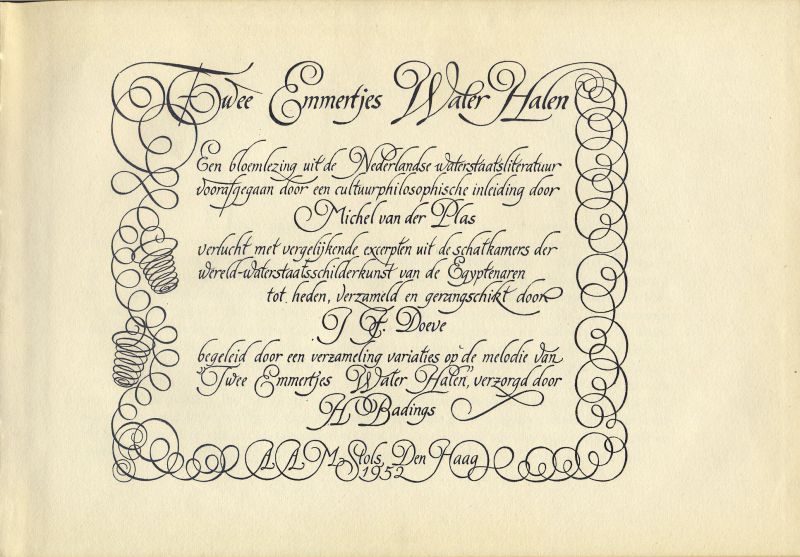 Twee Emmertjes Water Halen
Een bloemlezing uit de Nederlandse waterstaatsliteratuur
voorafgegaan door een cultuurphilosophische inleiding door
Michel van der Plas
verlucht met vergelijkende excerpten uit de schatkamers der
wereld-waterstaatsschilderkunst van de Egyptenaren
tot heden, verzameld en gerangschikt door
J F. Doeve
begeleid door een verzameling variaties op de melodie van
"Twee Emmertjes Water Halen", verzorgd door
H. Badings
A A M Stols, Den Haag
1952